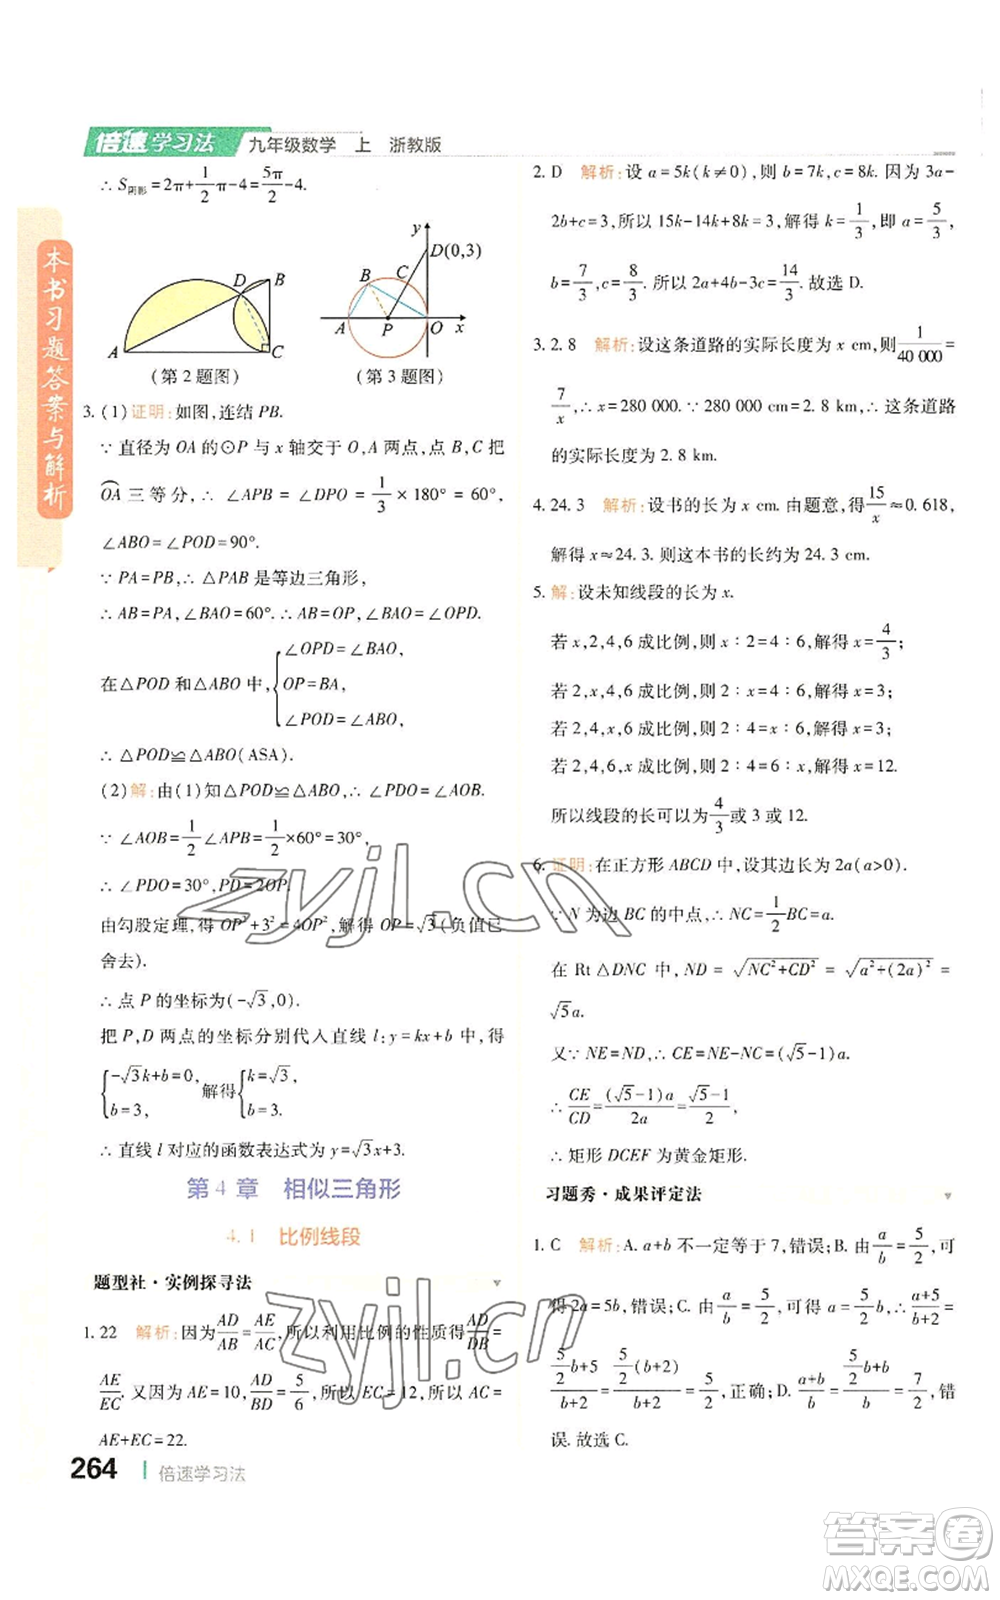 倍速学习法 九年级数学 上 浙教版
本书习题答案与解析
∴ S阴影=2π+1/2π-4=5π/2-4.
A B C D
(第2题图)
y D(0,3) B C A P O x
(第3题图)
3. (1) 证明: 如图, 连结 PB.
∵ 直径为 OA 的⊙P 与 x 轴交于 O,A 两点, 点 B,C 把
⌒OA 三等分, ∴ ∠APB=∠DPO=1/3×180°=60°,
∠ABO=∠POD=90°.
∵ PA=PB, ∴ △PAB 是等边三角形,
∴ AB=PA, ∠BAO=60°. ∴ AB=OP, ∠BAO=∠OPD.
在△POD 和△ABO 中, { ∠OPD=∠BAO,
OP=BA,
∠POD=∠ABO,
∴ △POD≌△ABO(ASA).
(2) 解: 由(1)知△POD≌△ABO, ∴ ∠PDO=∠AOB.
∵ ∠AOB=1/2∠APB=1/2×60°=30°,
∴ ∠PDO=30°, PD=2OP.
由勾股定理, 得 OP²+3²=4OP², 解得 OP=√3(负值已
舍去).
∴ 点 P 的坐标为(-√3,0).
把 P,D 两点的坐标分别代入直线 l:y=kx+b 中, 得
{-√3k+b=0, b=3, 解得{k=√3, b=3.
∴ 直线 l 对应的函数表达式为 y=√3x+3.
第4章 相似三角形
4.1 比例线段
题型社·实例探寻法
1. 22 解析: 因为AD/AB=AE/AC, 所以利用比例的性质得AD/DB=
AE/EC. 又因为 AE=10, AD/BD=5/6, 所以 EC=12, 所以 AC=
AE+EC=22.
264 | 倍速学习法
2. D 解析: 设 a=5k(k≠0), 则 b=7k,c=8k. 因为 3a-
2b+c=3, 所以 15k-14k+8k=3, 解得 k=1/3, 即 a=5/3,
b=7/3,c=8/3. 所以 2a+4b-3c=14/3. 故选 D.
3. 2.8 解析: 设这条道路的实际长度为 x cm, 则1/40 000=
7/x, ∴ x=280 000. ∵ 280 000 cm=2.8 km, ∴ 这条道路
的实际长度为 2.8 km.
4. 24.3 解析: 设书的长为 x cm. 由题意, 得15/x≈0.618,
解得 x≈24.3. 则这本书的长约为 24.3 cm.
5. 解: 设未知线段的长为 x.
若 x,2,4,6 成比例, 则 x∶2=4∶6, 解得 x=4/3;
若 2,x,4,6 成比例, 则 2∶x=4∶6, 解得 x=3;
若 2,4,x,6 成比例, 则 2∶4=x∶6, 解得 x=3;
若 2,4,6,x 成比例, 则 2∶4=6∶x, 解得 x=12.
所以线段的长可以为4/3或 3 或 12.
6. 证明: 在正方形 ABCD 中, 设其边长为 2a(a>0).
∵ N 为边 BC 的中点, ∴ NC=1/2BC=a.
在 Rt△DNC 中, ND=√(NC²+CD²)=√(a²+(2a)²)=
√5a.
又∵ NE=ND, ∴ CE=NE-NC=(√5-1)a.
∴ CE/CD=(√5-1)a/2a=(√5-1)/2,
∴ 矩形 DCEF 为黄金矩形.
习题秀·成果评定法
1. C 解析: A. a+b 不一定等于 7, 错误; B. 由a/b=5/2, 可
得 2a=5b, 错误; C. 由a/b=5/2, 可得 a=5/2b, ∴ (a+5)/(b+2)=
(5/2b+5)/(b+2)=5/2(b+2)/(b+2)=5/2, 正确; D. (a+b)/b=(5/2b+b)/b=7/2, 错
误. 故选 C.
zyjl.cn
zyjl.cn
答案圈
MXQE.COM